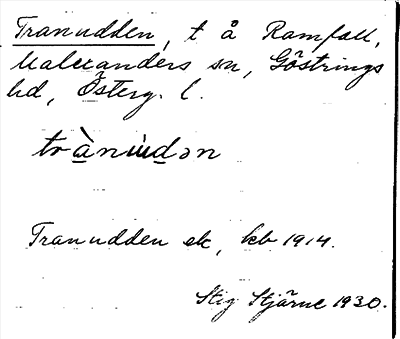 Tranudden, t å Ramfall,
Malexanders sn, Göstrings
hd, Österg. l.
trànùdən
Tranudden ek, kb 1914.
Stig Stjärne 1930.